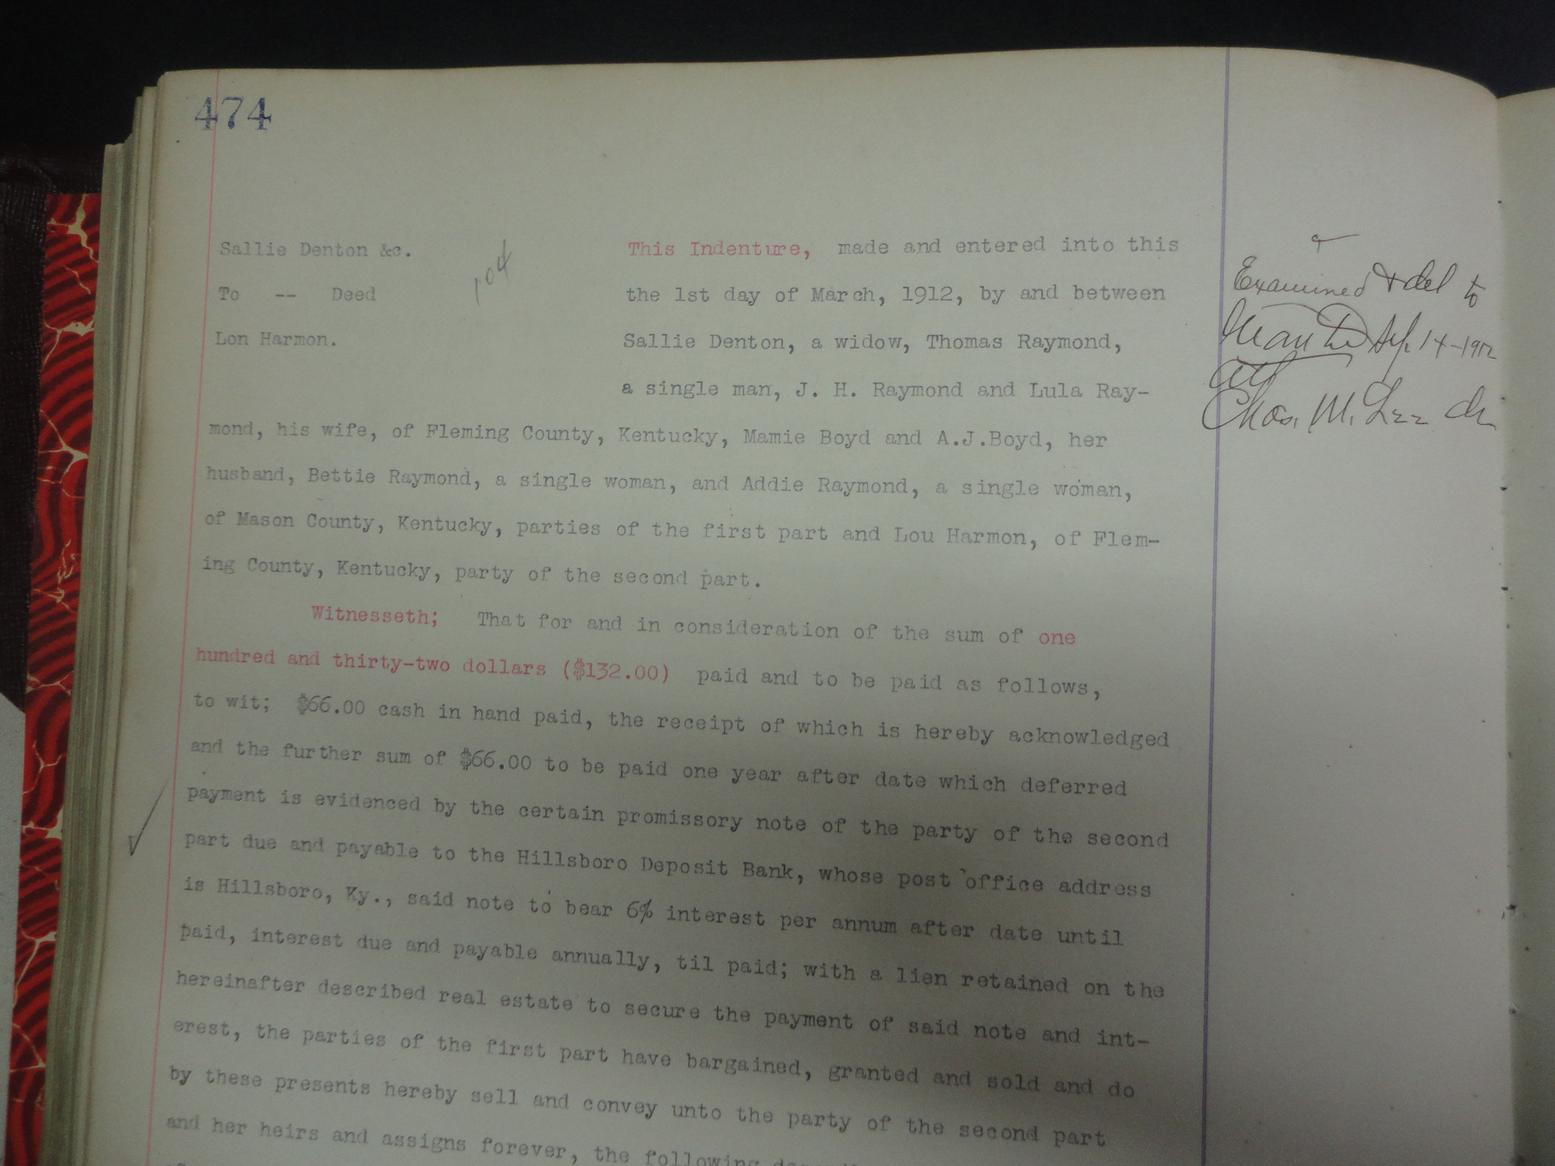 474
Sallie Denton &c.
To -- Deed
Lon Harmon.
104
This Indenture, made and entered into this
the 1st day of March, 1912, by and between
Sallie Denton, a widow, Thomas Raymond,
a single man, J. H. Raymond and Lula Ray-
mond, his wife, of Fleming County, Kentucky, Mamie Boyd and A.J.Boyd, her
husband, Bettie Raymond, a single woman, and Addie Raymond, a single woman,
of Mason County, Kentucky, parties of the first part and Lou Harmon, of Flem-
ing County, Kentucky, party of the second part.
Witnesseth; That for and in consideration of the sum of one
hundred and thirty-two dollars ($132.00) paid and to be paid as follows,
to wit; $66.00 cash in hand paid, the receipt of which is hereby acknowledged
and the further sum of $66.00 to be paid one year after date which deferred
payment is evidenced by the certain promissory note of the party of the second
part due and payable to the Hillsboro Deposit Bank, whose post office address
is Hillsboro, Ky., said note to bear 6% interest per annum after date until
paid, interest due and payable annually, til paid; with a lien retained on the
hereinafter described real estate to secure the payment of said note and int-
erest, the parties of the first part have bargained, granted and sold and do
by these presents hereby sell and convey unto the party of the second part
and her heirs and assigns forever, the following
Examined & del to
Grantee Sep. 14-1912
att
Chas. M. Lee